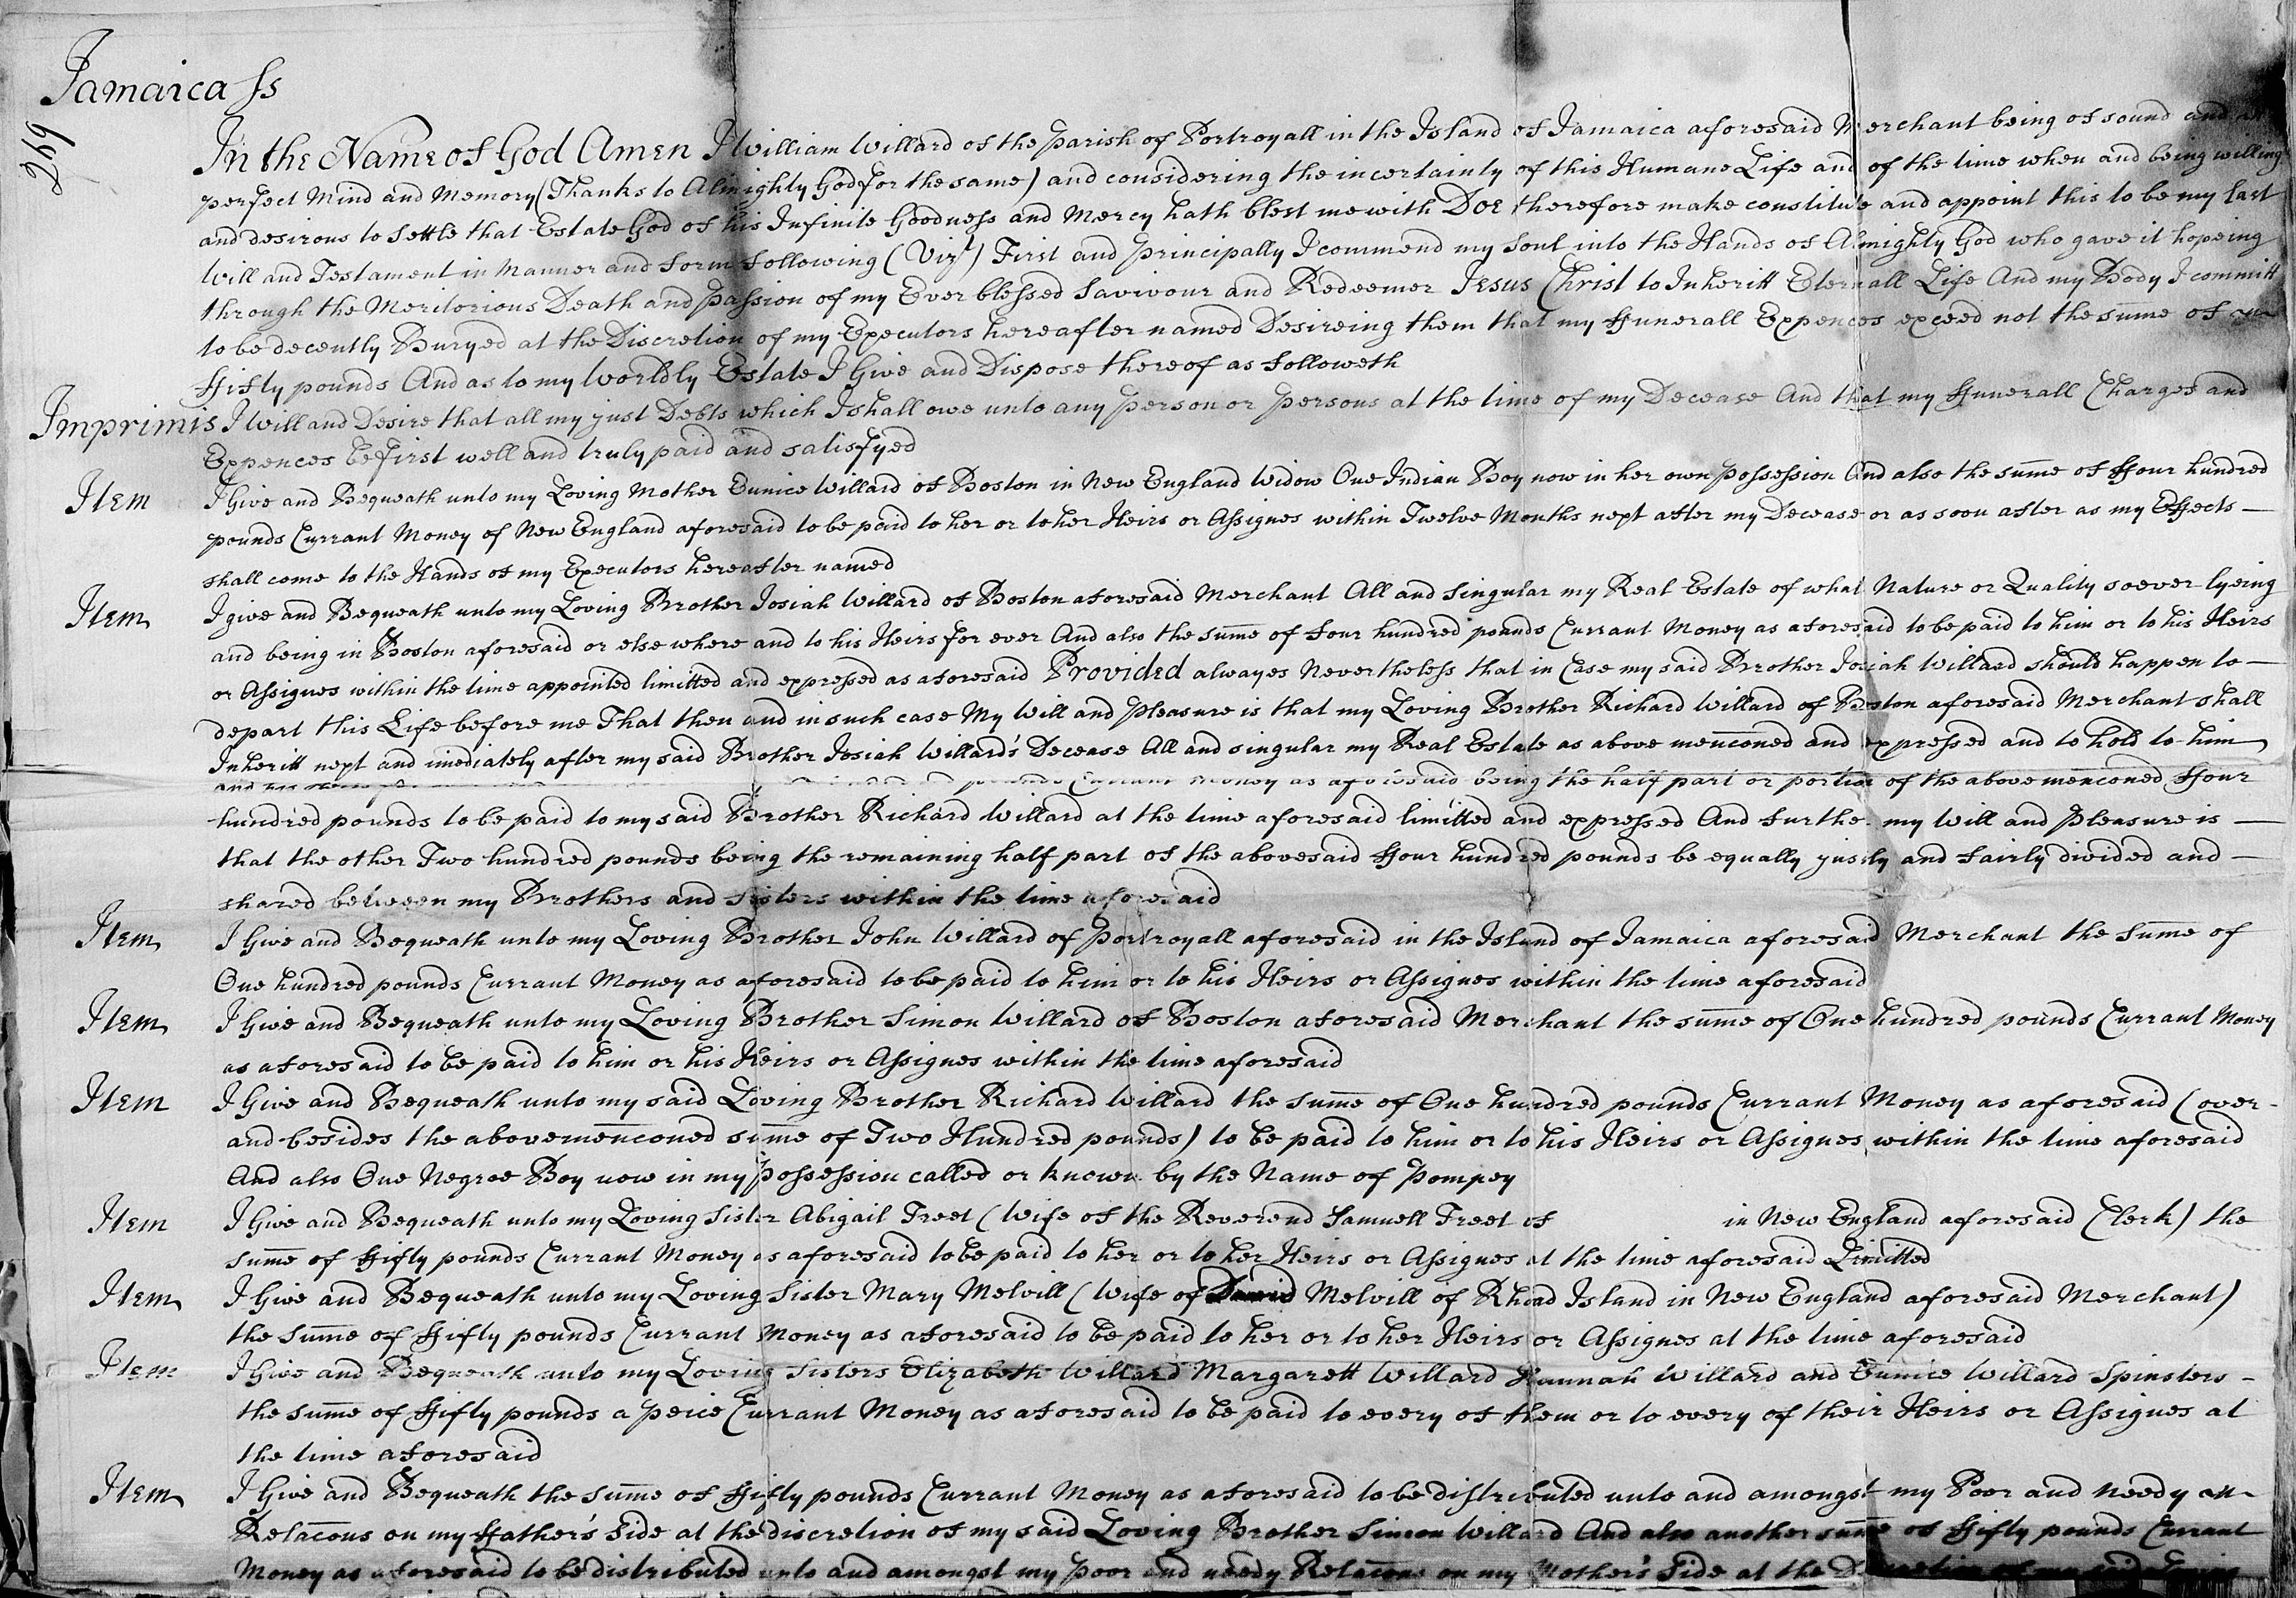 Jamaica ss
269
In the Name of God Amen I William Willard of the Parish of Portroyall in the Island of Jamaica aforesaid Merchant being of sound and
perfect Mind and Memory (Thanks to Almighty God for the same) and considering the incertainty of this Humane Life and of the time when and being willing
and desirous to settle that Estate God of his Infinite Goodness and Mercy hath blest me with Doe therefore make constitute and appoint this to be my last
Will and Testament in Manner and form following (Vizt) First and Principally I commend my Soul into the Hands of Almighty God who gave it hopeing
through the Meritorious Death and Passion of my Ever blessed Savivour and Redeemer Jesus Christ to Inheritt Eternall Life And my Body I committ
to be decently Buryed at the Discretion of my Executors hereafter named Desireing them that my ffunerall Expences exceed not the sume of
ffifty pounds And as to my Worldly Estate I Give and Dispose thereof as followeth
Imprimis I Will and Desire that all my just Debts which I shall owe unto any Person or Persons at the time of my Decease And that my ffunerall Charges and
Expences be first well and truly paid and satisfyed
Item I Give and Bequeath unto my Loving Mother Eunice Willard of Boston in New England Widow One Indian Boy now in her own Possession And also the sume of ffour hundred
pounds Currant Money of New England aforesaid to be paid to her or to her Heirs or Assignes within Twelve Months next after my Decease or as soon after as my Effects —
shall come to the Hands of my Executors hereafter named
Item I give and Bequeath unto my Loving Brother Josiah Willard of Boston aforesaid Merchant All and Singular my Real Estate of what Nature or Quality soever lyeing
and being in Boston aforesaid or else where and to his Heirs for ever And also the sume of four hundred pounds Currant Money as aforesaid to be paid to him or to his Heirs
or Assignes within the time appointed limitted and expressed as aforesaid Provided alwayes Nevertheless that in Case my said Brother Josiah Willard should happen to —
depart this Life before me That then and in such case My Will and Pleasure is that my Loving Brother Richard Willard of Boston aforesaid Merchant shall
Inheritt next and imediately after my said Brother Josiah Willard's Decease All and singular my Real Estate as above menconed and expressed and to hold to him
and his pounds Currant Money as aforesaid being the half part or portion of the above menconed ffour
hundred pounds to be paid to my said Brother Richard Willard at the time aforesaid limitted and expressed And further my Will and Pleasure is —
that the other Two hundred pounds being the remaining half part of the abovesaid ffour hundred pounds be equally justly and fairly divided and —
shared between my Brothers and Sisters within the time aforesaid
Item I Give and Bequeath unto my Loving Brother John Willard of Portroyall aforesaid in the Island of Jamaica aforesaid Merchant the Sume of
One hundred pounds Currant Money as aforesaid to be paid to him or to his Heirs or Assignes within the time aforesaid
Item I Give and Bequeath unto my Loving Brother Simon Willard of Boston aforesaid Merchant the sume of One hundred pounds Currant Money
as aforesaid to be paid to him or his Heirs or Assignes within the time aforesaid
Item I Give and Bequeath unto my said Loving Brother Richard Willard the Sume of One hundred pounds Currant Money as aforesaid (over-
and besides the abovemenconed sume of Two Hundred pounds) to be paid to him or to his Heirs or Assignes within the time aforesaid
And also One Negroe Boy now in my Possession called or known by the Name of Pompey
Item I Give and Bequeath unto my Loving Sister Abigail Treet (Wife of the Reverend Samuell Treet of in New England aforesaid Clerk) the
Sume of ffifty pounds Currant Money as aforesaid to be paid to her or to her Heirs or Assignes at the time aforesaid Limitted
Item I Give and Bequeath unto my Loving Sister Mary Melvill (Wife of David Melvill of Rhoad Island in New England aforesaid Merchant)
the Sume of ffifty pounds Currant Money as aforesaid to be paid to her or to her Heirs or Assignes at the time aforesaid
Item I Give and Bequeath unto my Loving Sisters Elizabeth Willard Margarett Willard Hannah Willard and Eunice Willard Spinsters -
the Sume of ffifty pounds a peice Currant Money as aforesaid to be paid to every of them or to every of their Heirs or Assignes at
the time aforesaid
Item I Give and Bequeath the Sume of ffifty pounds Currant Money as aforesaid to be distributed unto and amongst my Poor and Needy
Relacons on my ffather's Side at the discretion of my said Loving Brother Simon Willard And also another sume of ffifty pounds Currant
Money as aforesaid to be distributed unto and amongst my Poor and needy Relacons on my Mother's Side at the